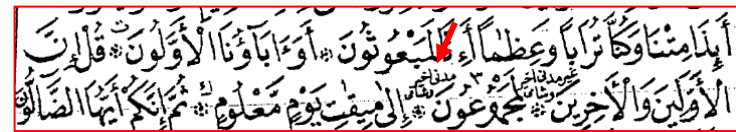 أَيِذَا مِتْنَا وَكُنَّا تُرَابًا وَعِظَٰمًا أَءِنَّا لَمَبْعُوثُونَ ۞ أَوَءَابَآؤُنَا الْأَوَّلُونَ ۞ قُلْ إِنَّ
الْأَوَّلِينَ وَالْأَخِرِينَ ۞ لَمَجْمُوعُونَ ۞ إِلَىٰ مِيقَٰتِ يَوْمٍ مَّعْلُومٍ ۞ ثُمَّ إِنَّكُمْ أَيُّهَا الضَّآلُّونَ